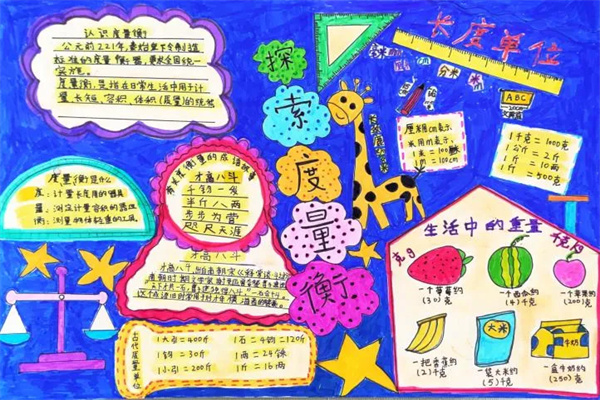 认识度量衡
公元前221年,秦始皇下令制造
标准的度量衡器,要求全国统一
实施。
度量衡,是指在日常生活中用于计
量长短、容积、体积(质量)的统称
探
索
度
量
衡
长度单位
分米
ABC
厘米用cm表示
米用m表示
1米=100厘米
1m=100cm
1千克=1000克
1公斤=2斤
1斤=10两
1斤=500克
度量衡是什么
度:计量长度用的器具
量:测定计量容积的器皿
衡:测量物体轻重的工具
有关度量衡的成语故事
才高八斗
千钧一发
半斤八两
步步为营
咫尺天涯
才高八斗
古代度量单位
1大引=400斤
1钧=30斤
1小引=200斤
1石=4钧=120斤
1两=24铢
1斤=16两
生活中的重量
克 g
千克 kg
一个草莓约
(30)克
一个西瓜约
(4)千克
一个苹果约
(200)克
一把香蕉约
(2)千克
大米
一袋大米约
(5)千克
牛奶
一盒牛奶约
(250)克